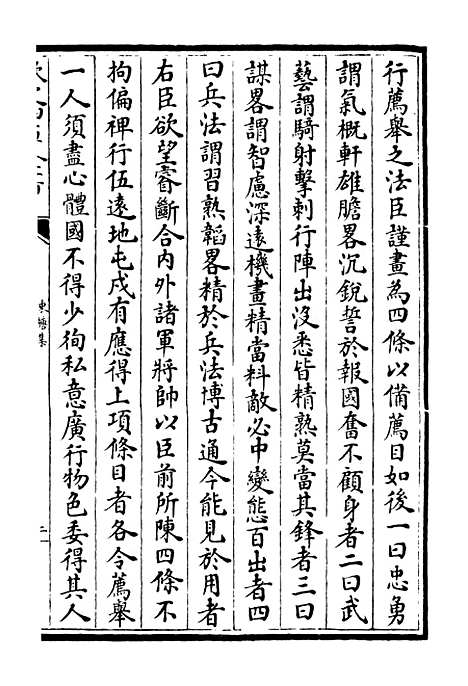 行薦舉之法臣謹畫為四條以備薦目如後一曰忠勇
謂氣概軒雄膽畧沉銳誓於報國奮不顧身者二曰武
藝謂騎射擊刺行陣出沒悉皆精熟莫當其鋒者三曰
謀畧謂智慮深遠機畫精當料敵必中變態百出者四
曰兵法謂習熟韜畧精於兵法博古通今能見於用者
右臣欲望睿斷合內外諸軍將帥以臣前所陳四條不
拘偏裨行伍遠地屯戍有應得上項條目者各令薦舉
一人須盡心體國不得少徇私意廣行物色委得其人
東塘集